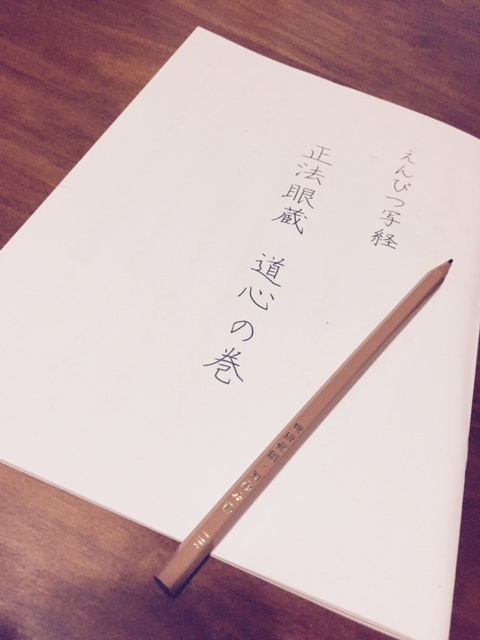 えんぴつ写経
正法眼蔵 道心の巻